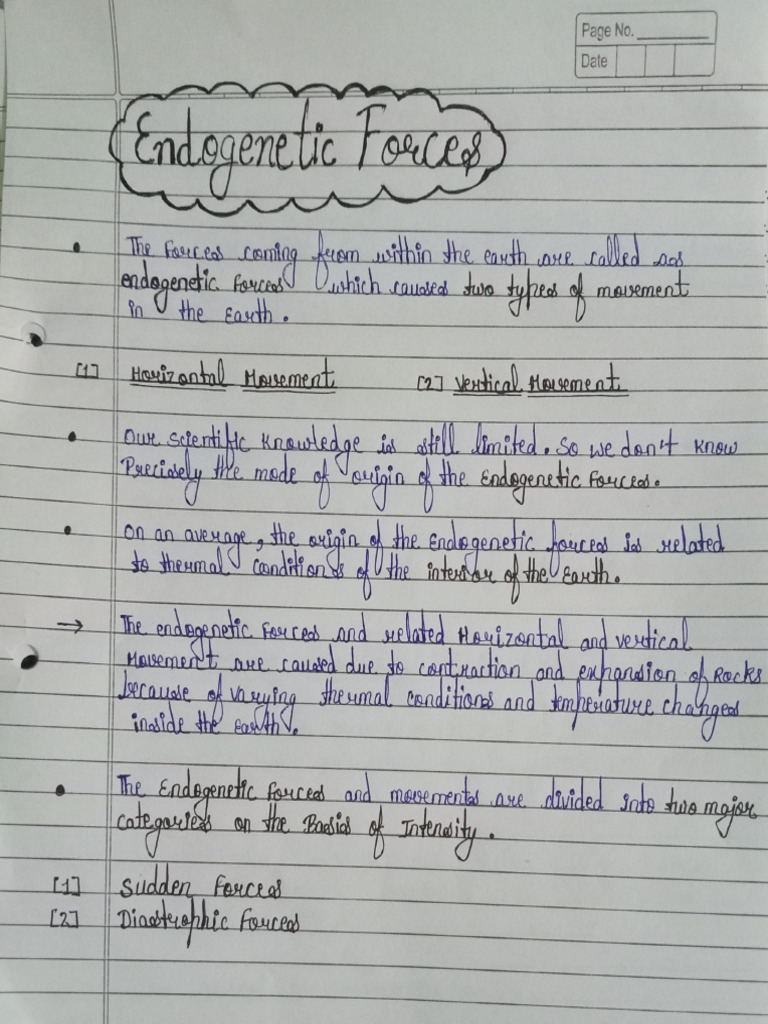 Page No.
Date
Endogenetic Forces
• The Forces coming from within the earth are called as
endogenetic forces which caused two types of movement
in the Earth.
[1] Horizontal Movement [2] Vertical Movement
• Our scientific knowledge is still limited. So we don't know
Precisely the mode of origin of the Endogenetic Forces.
• On an average, the origin of the Endogenetic forces is related
to thermal conditions of the interior of the Earth.
→ The endogenetic forces and related Horizontal and vertical
Movement are caused due to contraction and expansion of Rocks
because of varying thermal conditions and temperature changes
inside the earth.
• The Endogenetic forces and movements are divided into two major
categories on the Basis of Intensity.
[1] Sudden Forces
[2] Diastrophic Forces